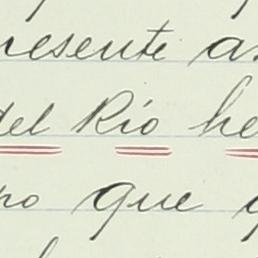 resente a
del Río he
po que